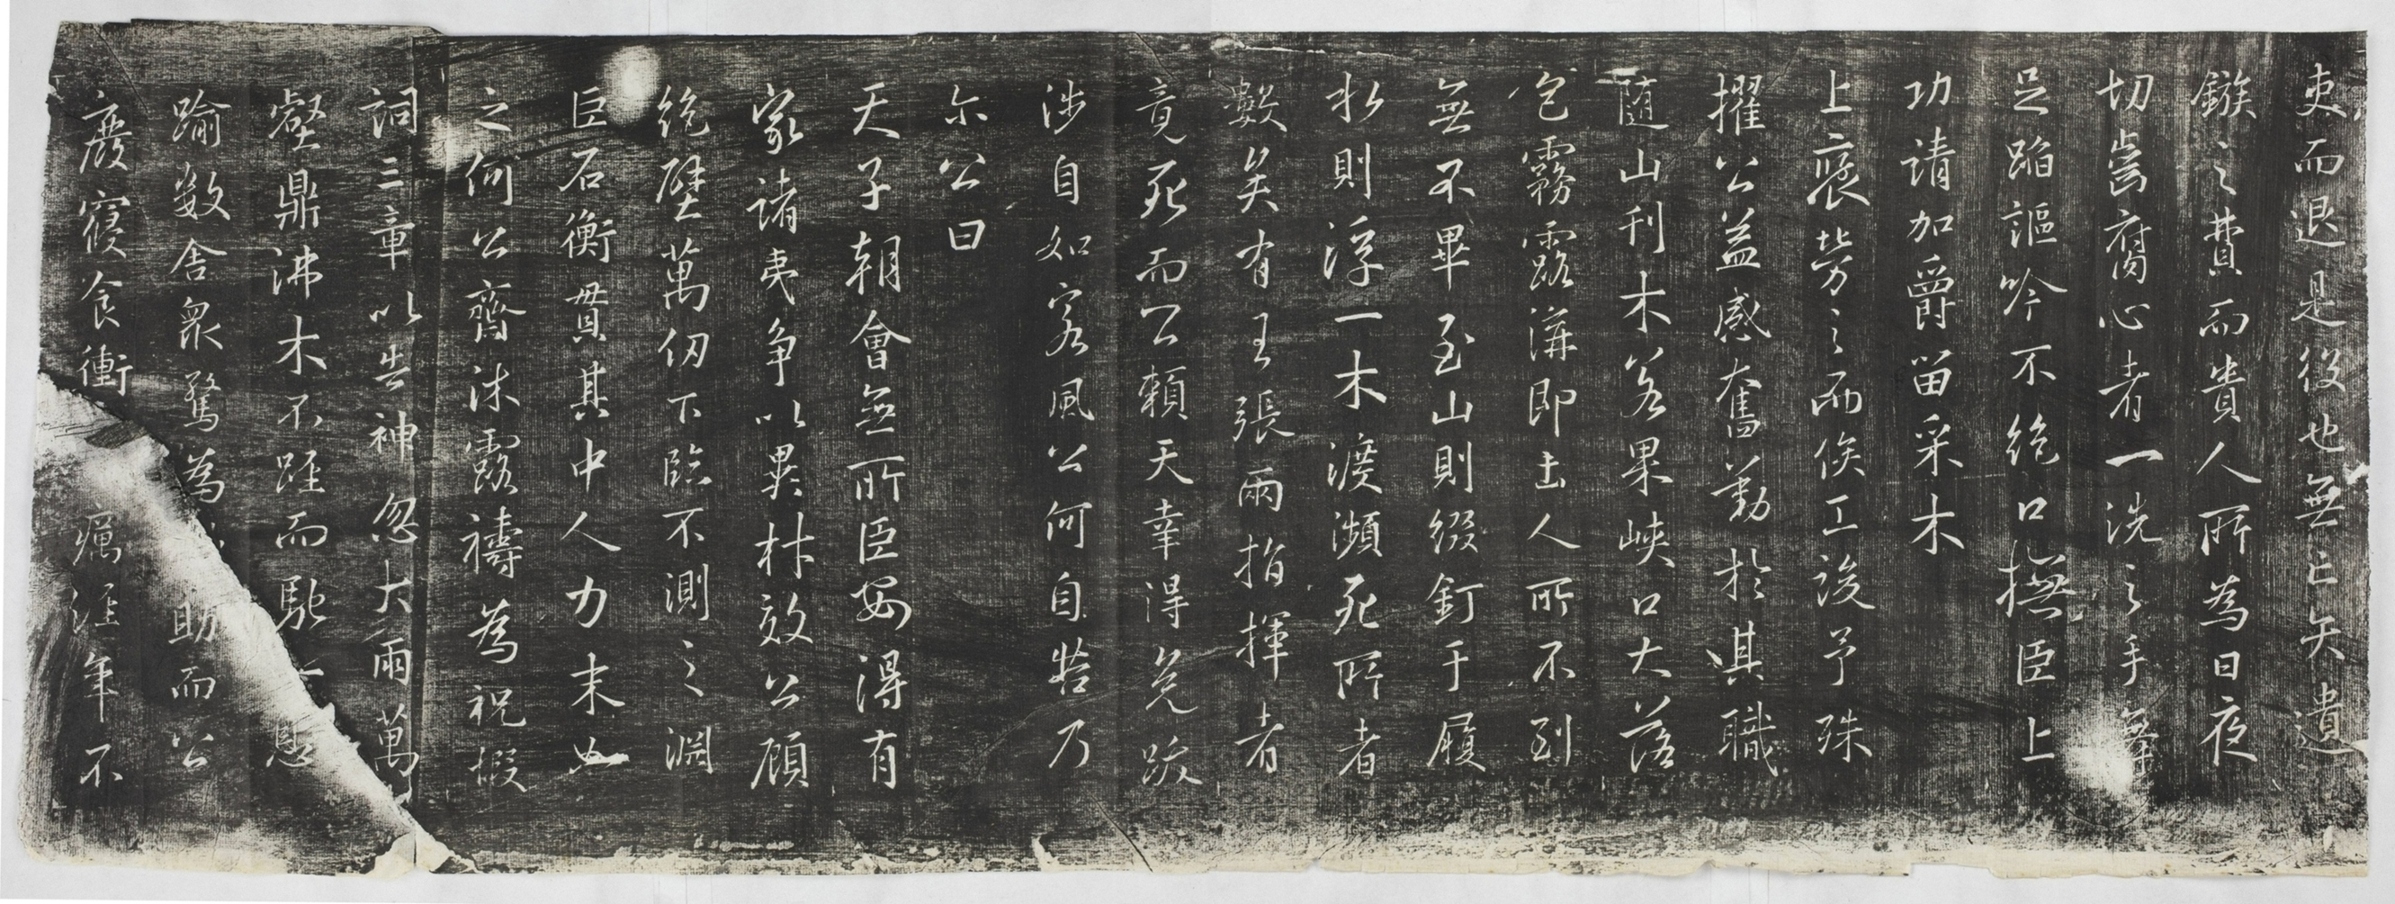 吏而退是役也無亡矢遺
鏃之費而貴人所為日夜
切齒腐心者一洗之手舞
足蹈謳吟不絶口撫臣上
功請加爵留采木
上褒勞之而俟工竣予殊
擢公益感奮勤於其職
隨山刊木若果峽口大落
包霧露溝即土人所不到
無不畢至山則綴釘于履
水則浮一木渡瀕死所者
數矣有王張兩指揮者
竟死而公賴天幸得免跋
涉自如客風公何自苦乃
尔公曰
天子朝會無所臣安得有
家諸夷争以異材效公顧
絶壁萬仞下臨不測之淵
巨石衡貫其中人力末如
之何公齊沐露禱為祝嘏
詞三章以告神忽大雨萬
壑鼎沸木不踁而馳上慰
踰數舍衆驚為 助而公
廢寢食衝 癘淫年不